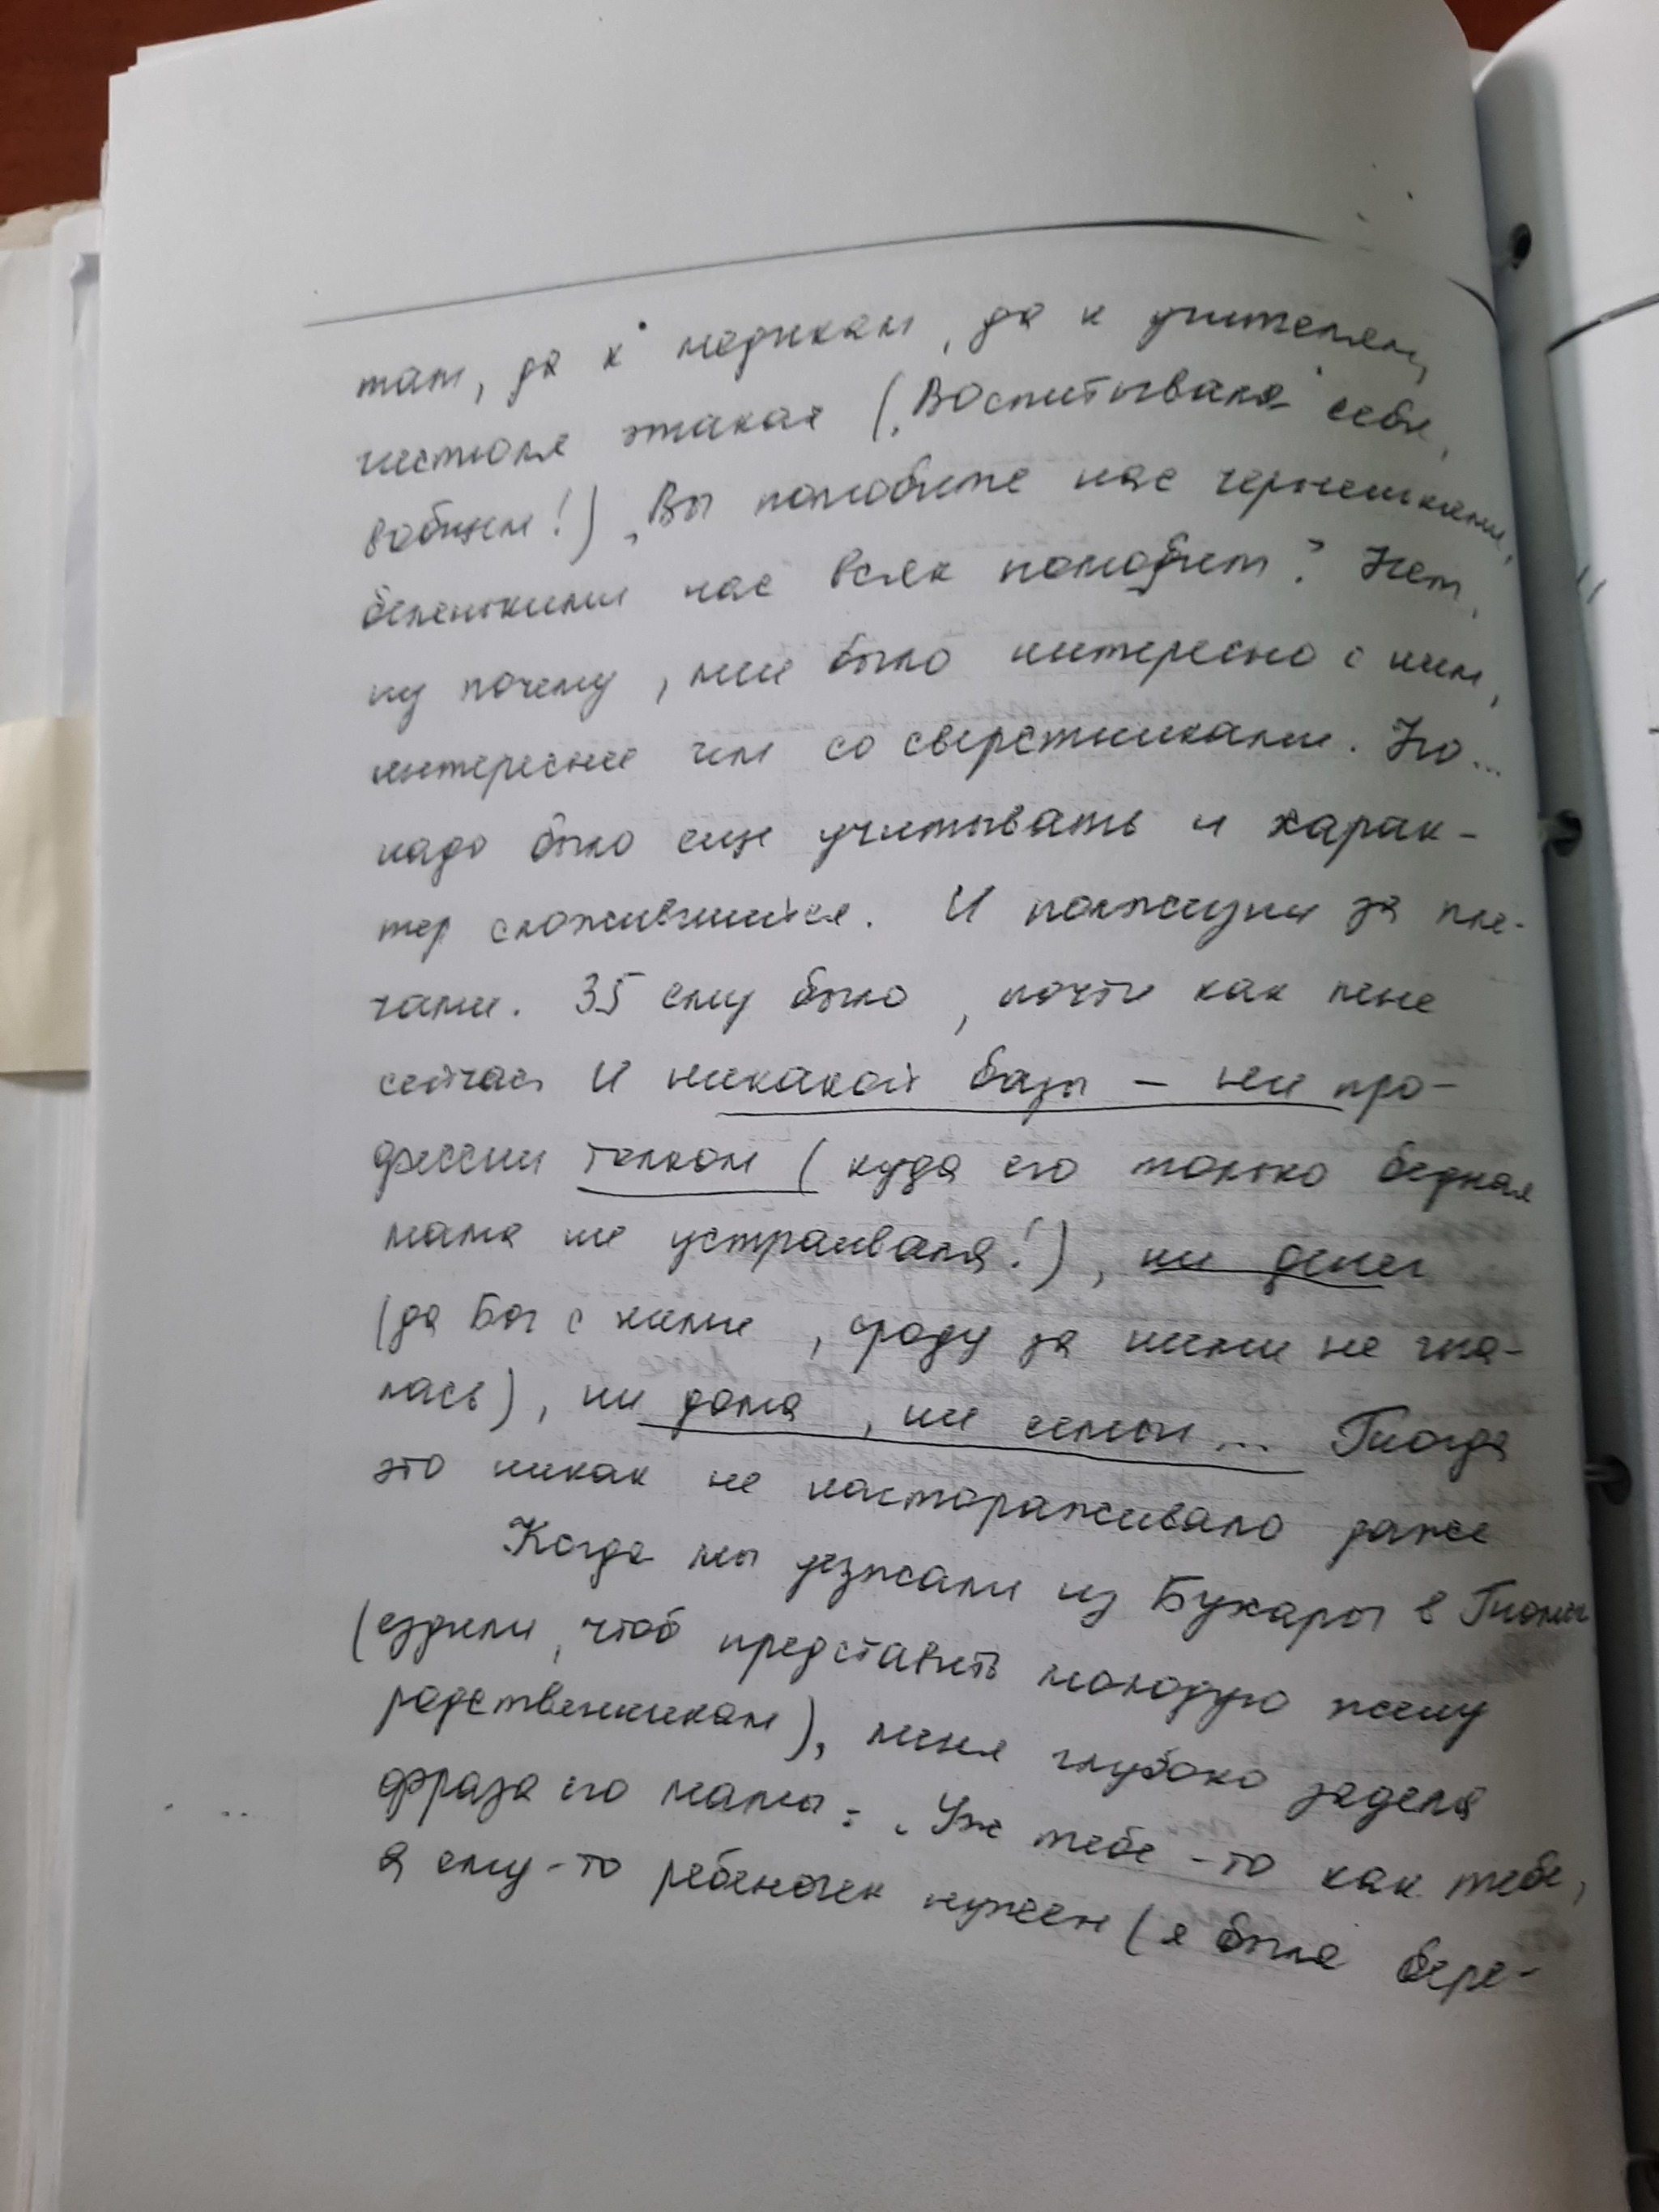 там, да к медикам, да к учителям,
чистюля этакая („Воспитывала" себя,
вобщем!) „Вы полюбите нас черненькими,
беленькими нас всяк полюбит? Нет,
ну почему, мне было интересно с ним,
интереснее чем со сверстниками. Но...
надо было еще учитывать и харак-
тер сложившийся. И полжизни за пле-
чами. 35 ему было, почти как мне
сейчас И никакой базы – ни про-
фессии толком (куда его только бедная
мама не устраивала!), ни денег
(да Бог с ними, сроду за ними не гна-
лась), ни дома, ни семьи... Тогда
это никак не настораживало даже
Когда мы уезжали из Бухары в Тюмень
(ездили, чтоб представить молодую жену
родственникам), меня глубоко задела
фраза его мамы: „Уж тебе-то как тебе,
а ему-то ребеночек нужен (я была бере-